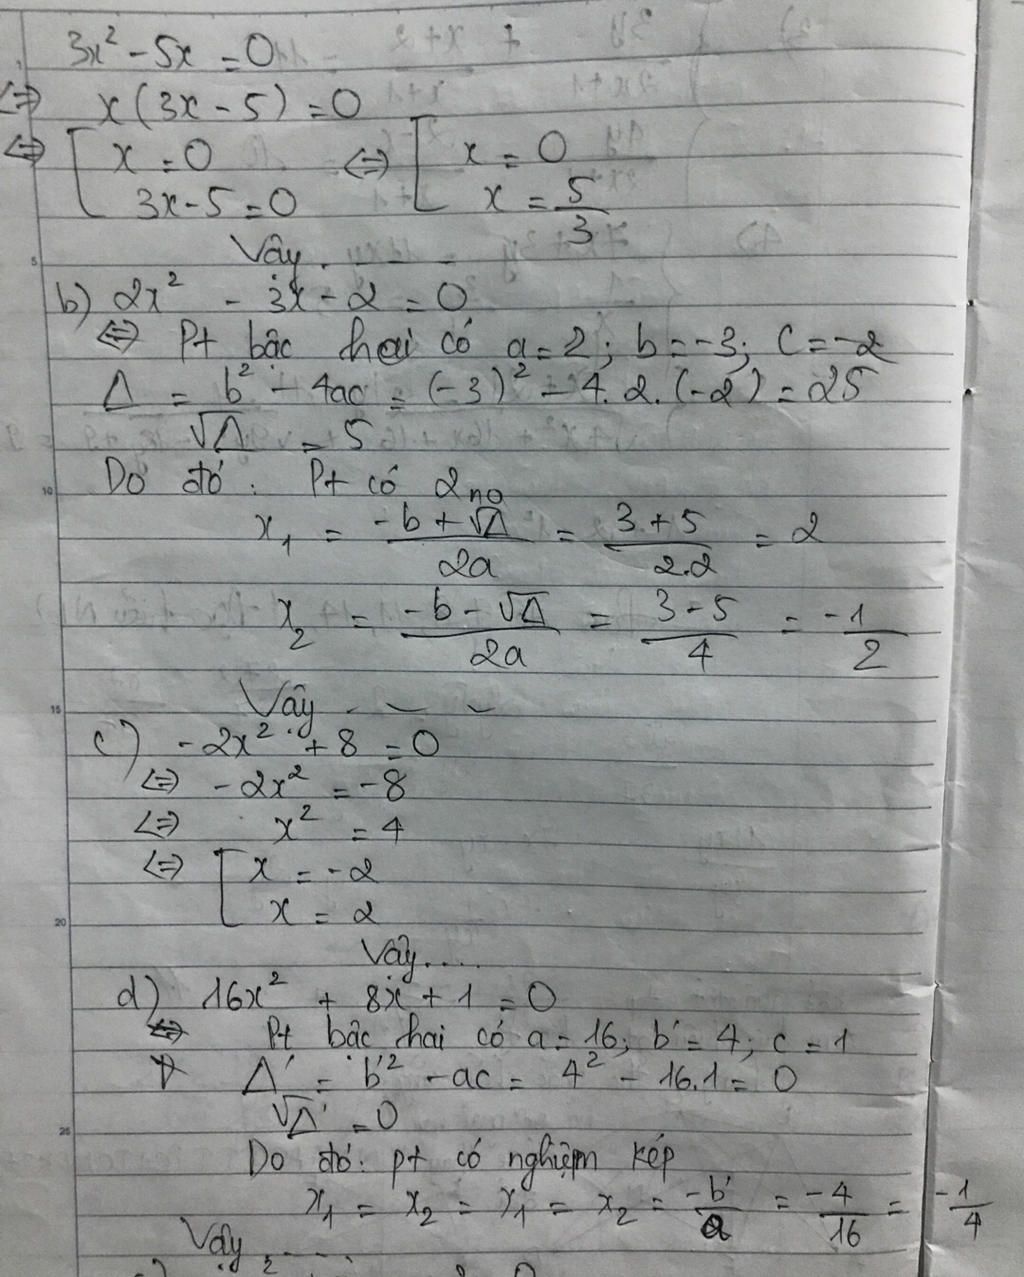 3x² - 5x = 0
⇔ x(3x - 5) = 0
⇔ [ x = 0 ⇔ [ x = 0
3x - 5 = 0 x = 5/3
Vậy . - -
b) 2x² - 3x - 2 = 0
⇔ Pt bậc hai có a = 2; b = -3; c = -2
Δ = b² - 4ac = (-3)² - 4.2.(-2) = 25
√Δ = 5
Do đó: Pt có 2 no
x₁ = (-b + √Δ)/2a = (3 + 5)/2.2 = 2
x₂ = (-b - √Δ)/2a = (3 - 5)/4 = -1/2
Vậy - - -
c) -2x² + 8 = 0
⇔ -2x² = -8
⇔ x² = 4
⇔ [ x = -2
x = 2
Vậy....
d) 16x² + 8x + 1 = 0
Pt bậc hai có a = 16; b' = 4; c = 1
Δ' = b'² - ac = 4² - 16.1 = 0
√Δ' = 0
Do đó: pt có nghiệm kép
x₁ = x₂ = x₁ = x₂ = -b'/a = -4/16 = -1/4
Vậy .....